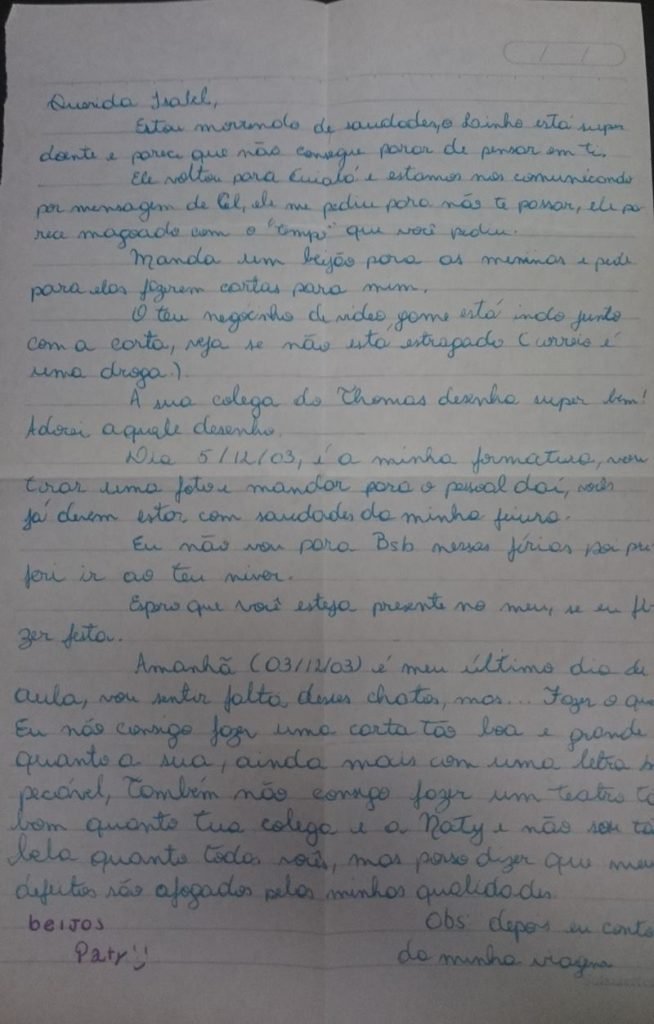 Querida Isabel,
Estou morrendo de saudades, o Lainho está super
doente e parece que não consegue parar de pensar em ti.
Ele voltou para Cuiabá e estamos nos comunicando
por mensagem de Cel, ele me pediu para não te passar, ele pa
rece magoado com o "tempo" que você pediu.
Manda um beijão para as meninas e pede
para elas fazerem cartas para mim.
O teu negocinho de video game está indo junto
com a carta, veja se não está estragado (correio é
uma droga!).
A sua colega do Thomas desenha super bem!
Adorei aquele desenho.
Dia 5/12/03, é a minha formatura, vou
tirar uma foto e mandar para o pessoal daí, vocês
já devem estar com saudades da minha feiura.
Eu não vou para Bsb nessas férias poi pre
feri ir ao teu niver.
Espero que você esteja presente no meu, se eu fi
zer festa.
Amanhã (03/12/03) é meu último dia de
aula, vou sentir falta desses chatos, mas... Fazer o que
Eu não consigo fazer uma carta tão boa e grande
quanto a sua, ainda mais com uma letra im
pecável, também não consigo fazer um teatro tã
bom quanto tua colega e a Naty e não sou tã
bela quanto todas vocês, mas posso dizer que meus
defeitos são afogados pelas minhas qualidades.
beijos
Paty
Obs: depois eu conto
da minha viagem